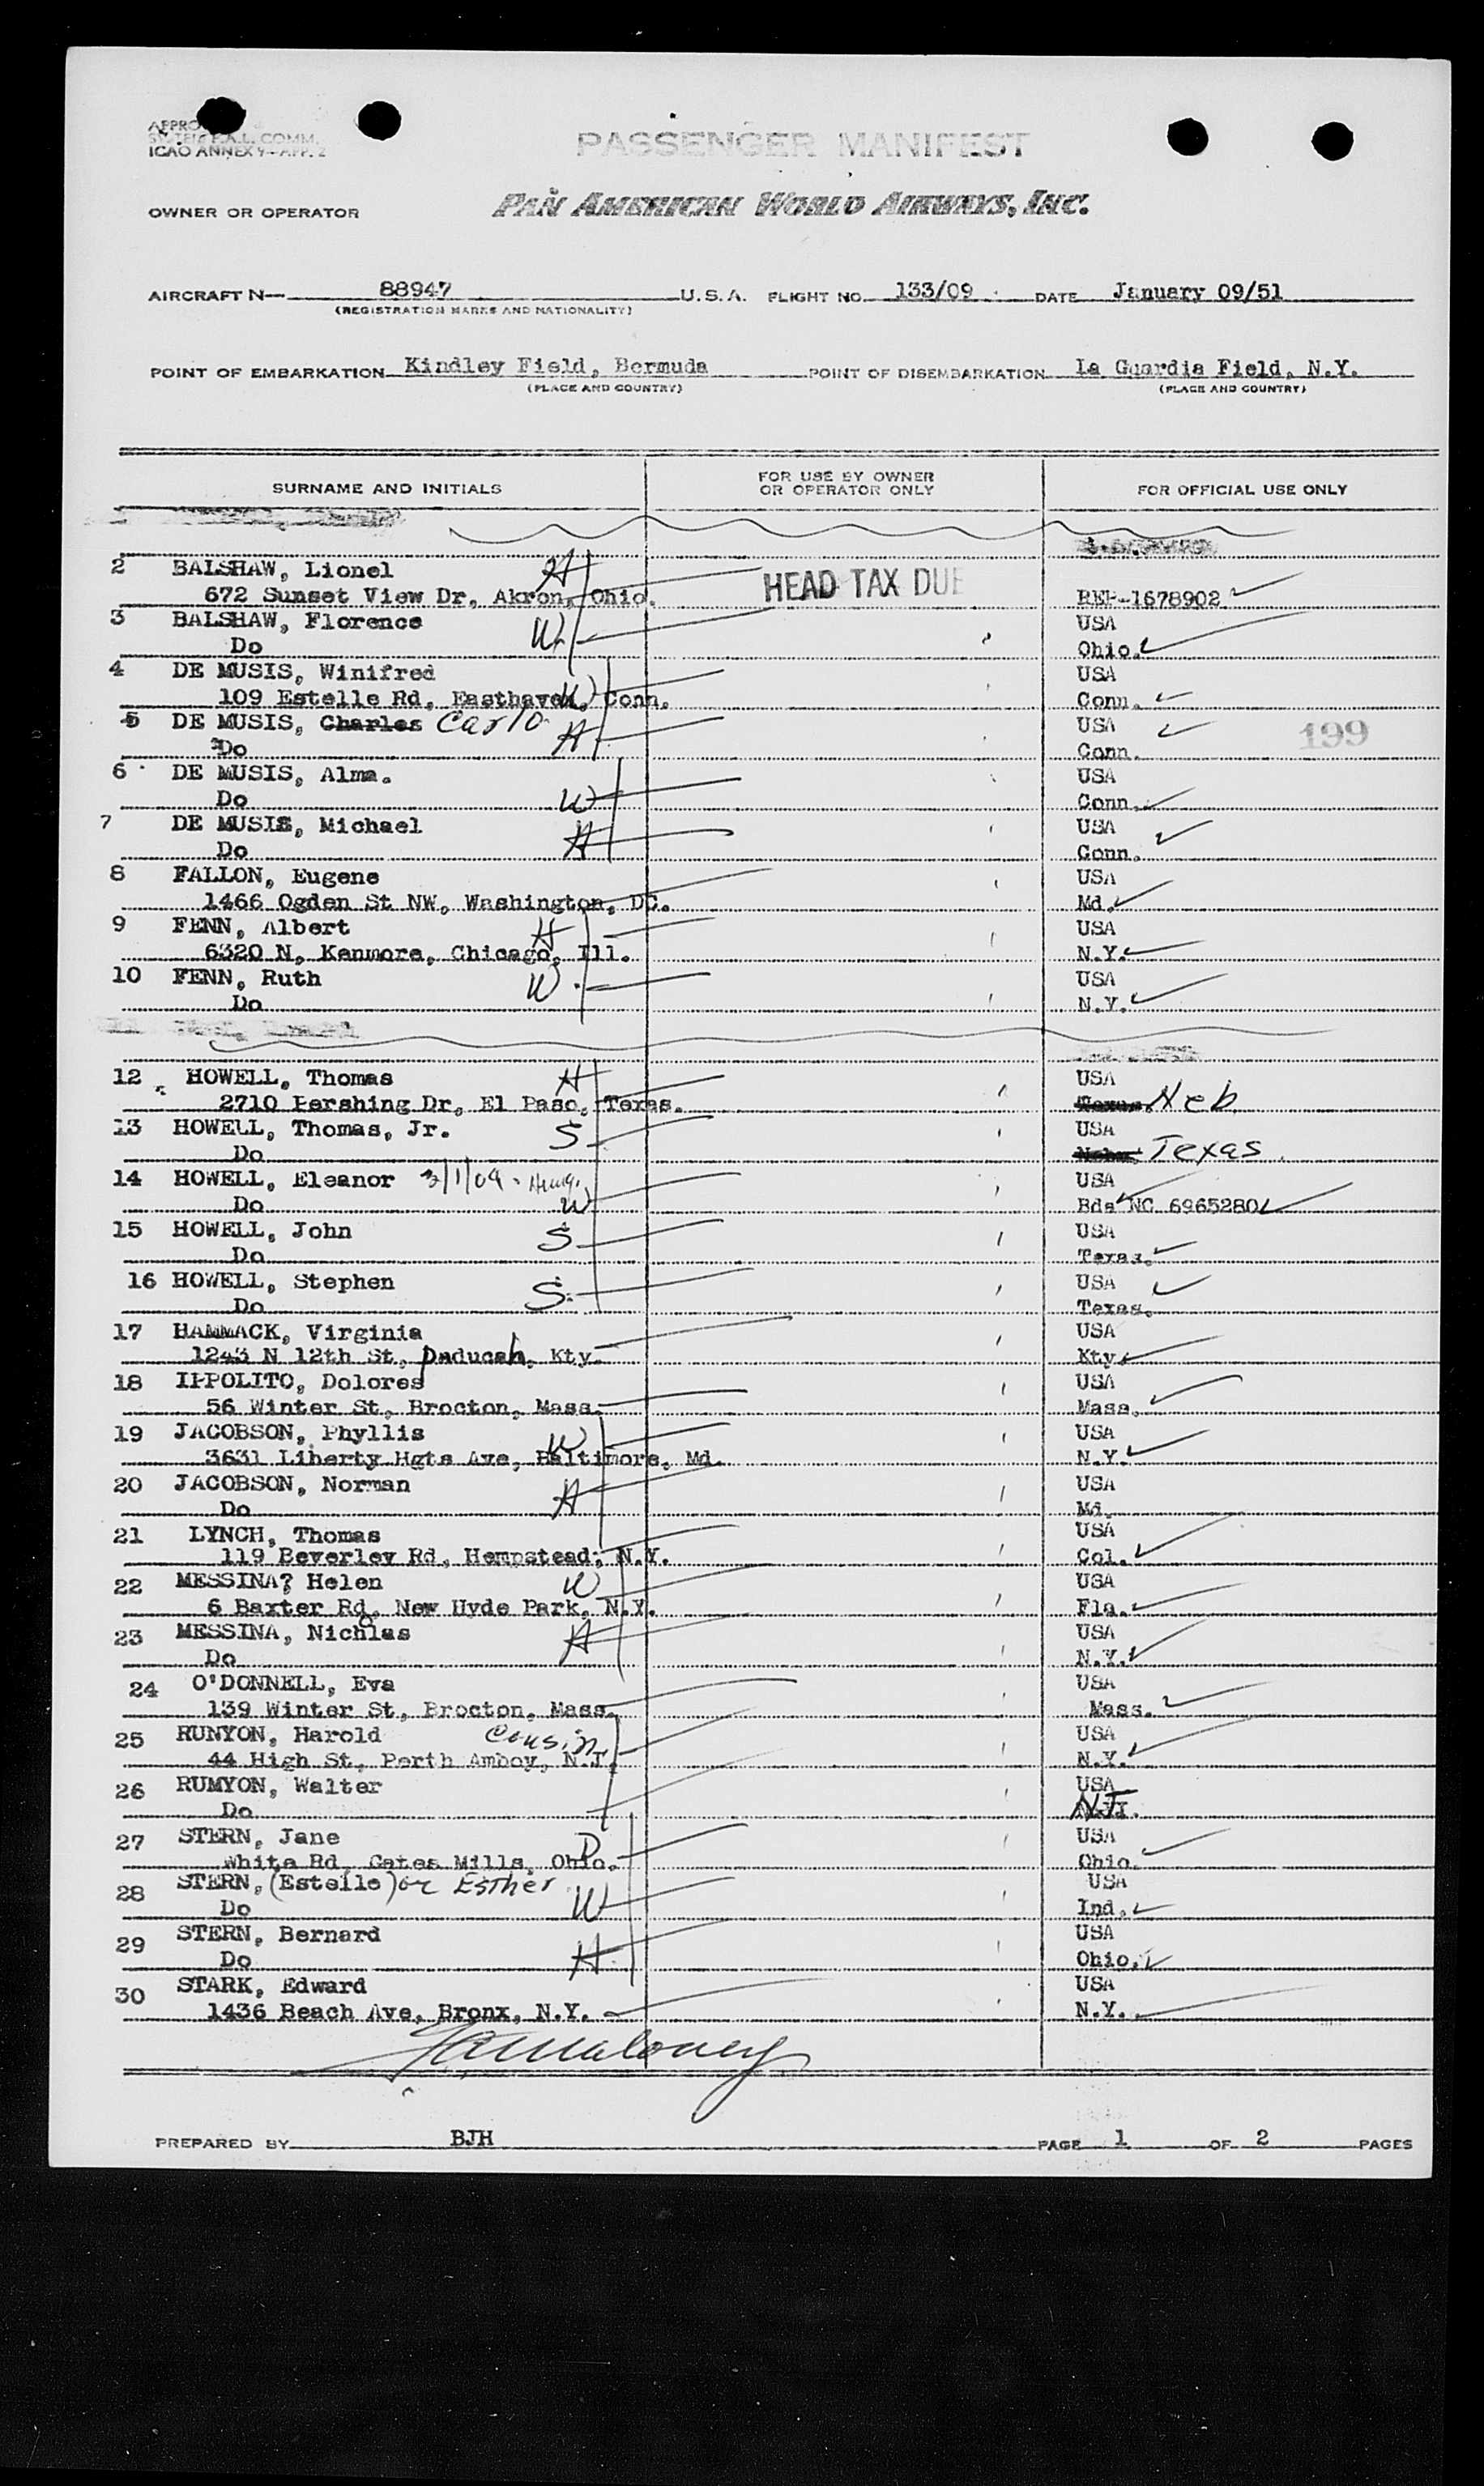 ICAO ANNEX 9—APP. 2
PASSENGER MANIFEST
OWNER OR OPERATOR PAN AMERICAN WORLD AIRWAYS, INC.
AIRCRAFT N— 88947 U.S.A. FLIGHT NO. 133/09 DATE January 09/51
(REGISTRATION MARKS AND NATIONALITY)
POINT OF EMBARKATION Kindley Field, Bermuda POINT OF DISEMBARKATION La Guardia Field, N.Y.
(PLACE AND COUNTRY) (PLACE AND COUNTRY)
SURNAME AND INITIALS FOR USE BY OWNER OR OPERATOR ONLY FOR OFFICIAL USE ONLY
2 BALSHAW, Lionel H
672 Sunset View Dr, Akron, Ohio. HEAD TAX DUE REP-1678902
3 BALSHAW, Florence W USA
Do Ohio.
4 DE MUSIS, Winifred USA
109 Estelle Rd, Easthaven, Conn. W Conn.
5 DE MUSIS, Charles Carlo H USA 199
Do Conn.
6 DE MUSIS, Alma. USA
Do W Conn.
7 DE MUSIS, Michael H USA
Do Conn.
8 FALLON, Eugene USA
1466 Ogden St NW, Washington, DC. Md.
9 FENN, Albert H USA
6320 N, Kenmore, Chicago, Ill. N.Y.
10 FENN, Ruth W USA
Do N.Y.
12 HOWELL, Thomas H USA
2710 Pershing Dr, El Paso, Texas. Texas. Neb
13 HOWELL, Thomas, Jr. S USA
Do Texas
14 HOWELL, Eleanor 3/1/09 Hung. USA
Do W Bds NC 6965280
15 HOWELL, John S USA
Do Texas.
16 HOWELL, Stephen S USA
Do Texas.
17 HAMMACK, Virginia USA
1243 N 12th St, Paducah, Kty. Kty.
18 IPPOLITO, Dolores USA
56 Winter St, Brocton, Mass. Mass.
19 JACOBSON, Phyllis W USA
3631 Liberty Hgts Ave, Baltimore, Md. N.Y.
20 JACOBSON, Norman H USA
Do Md.
21 LYNCH, Thomas USA
119 Beverley Rd, Hempstead, N.Y. Col.
22 MESSINA? Helen W USA
6 Baxter Rd, New Hyde Park, N.Y. Fla.
23 MESSINA, Nichlas o H USA
Do N.Y.
24 O'DONNELL, Eva USA
139 Winter St, Brocton, Mass. Mass.
25 RUNYON, Harold Cousin USA
44 High St, Perth Amboy, N.J. N.Y.
26 RUMYON, Walter USA
Do NJ
27 STERN, Jane D USA
White Rd, Gates Mills, Ohio. Ohio.
28 STERN, (Estelle) or Esther USA
Do W Ind.
29 STERN, Bernard USA
Do H Ohio.
30 STARK, Edward USA
1436 Beach Ave, Bronx, N.Y. N.Y.
PREPARED BY BJH PAGE 1 OF 2 PAGES